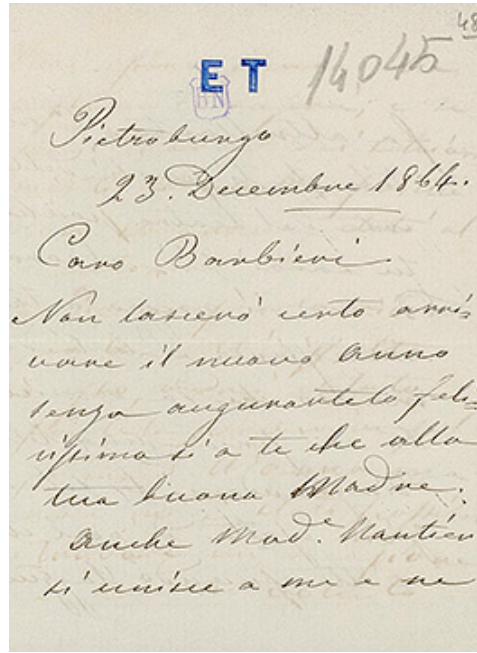 48
E T
14045
BN
Pietroburgo
23. Decembre 1864.
Caro Barbieri.
Non lascerò certo arri=
vare il nuovo Anno
senza augurartelo feli=
cissimo sì a te che alla
tua buona Madre.
Anche Mad.e Nantier
si unisce a me e ne